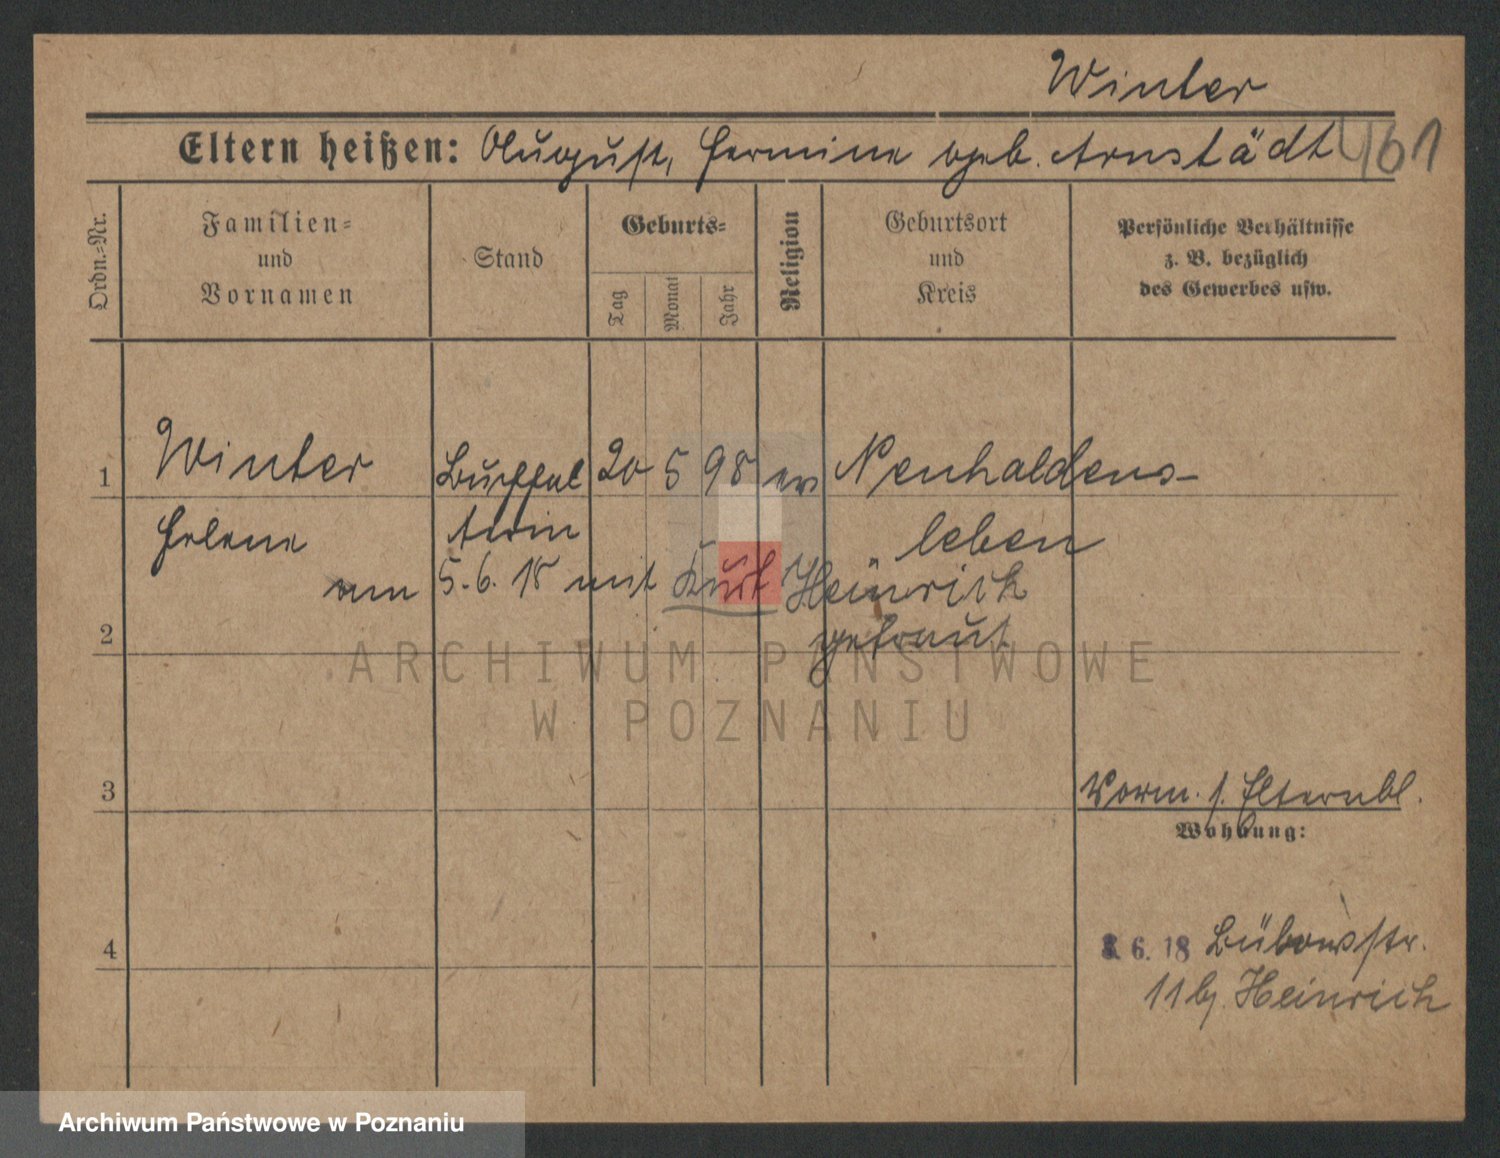 Winter
Eltern heißen: August, Hermine geb. Arnstädt 461
Ordn.-Nr.
Familien-
und
Vornamen
Stand
Geburts-
Tag
Monat
Jahr
Religion
Geburtsort
und
Kreis
Persönliche Verhältnisse
z. B. bezüglich
des Gewerbes usw.
1 Winter Buchhal 20 5 98 ev Neuhaldens-
Helene terin leben
am 5.6.18 mit Kurt Heinrich
getraut
2
ARCHIWUM PAŃSTWOWE
W POZNANIU
3 Vorm. s. Elternbl.
Wohnung:
4 6. 18 str.
11 bj. Heinrich
Archiwum Państwowe w Poznaniu